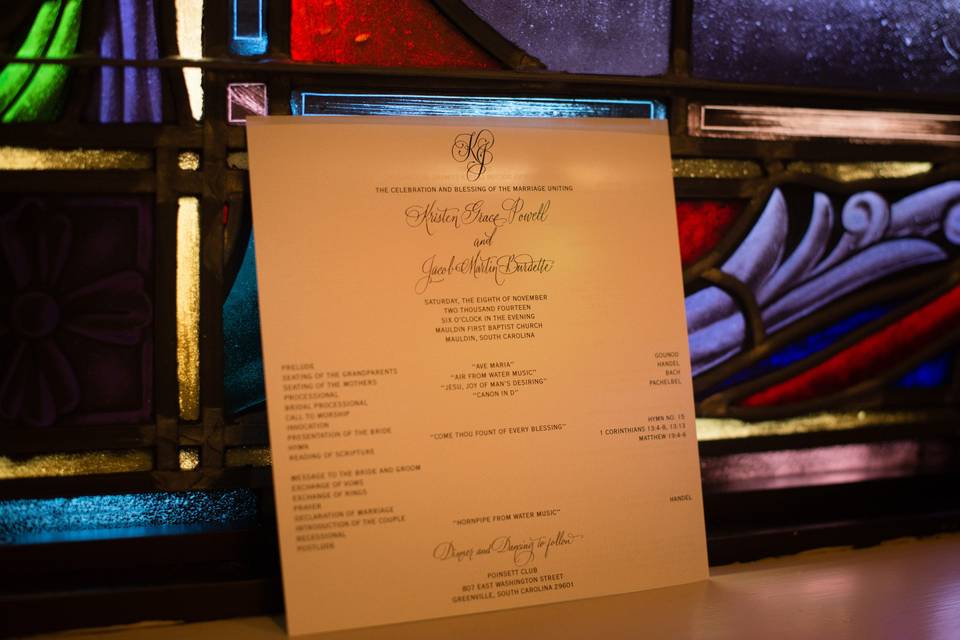 KJB
THE CELEBRATION AND BLESSING OF THE MARRIAGE UNITING
Kristen Grace Powell
and
Jacob Martin Burdette
SATURDAY, THE EIGHTH OF NOVEMBER
TWO THOUSAND FOURTEEN
SIX O'CLOCK IN THE EVENING
MAULDIN FIRST BAPTIST CHURCH
MAULDIN, SOUTH CAROLINA
PRELUDE
SEATING OF THE GRANDPARENTS "AVE MARIA" GOUNOD
SEATING OF THE MOTHERS "AIR FROM WATER MUSIC" HANDEL
PROCESSIONAL "JESU, JOY OF MAN'S DESIRING" BACH
BRIDAL PROCESSIONAL "CANON IN D" PACHELBEL
CALL TO WORSHIP
INVOCATION
PRESENTATION OF THE BRIDE
HYMN "COME THOU FOUNT OF EVERY BLESSING" HYMN NO. 15
READING OF SCRIPTURE 1 CORINTHIANS 13:4-8, 13:13
MATTHEW 19:4-6
MESSAGE TO THE BRIDE AND GROOM
EXCHANGE OF VOWS
EXCHANGE OF RINGS
PRAYER
DECLARATION OF MARRIAGE
INTRODUCTION OF THE COUPLE
RECESSIONAL "HORNPIPE FROM WATER MUSIC" HANDEL
POSTLUDE
Dinner and Dancing to follow
POINSETT CLUB
807 EAST WASHINGTON STREET
GREENVILLE, SOUTH CAROLINA 29601